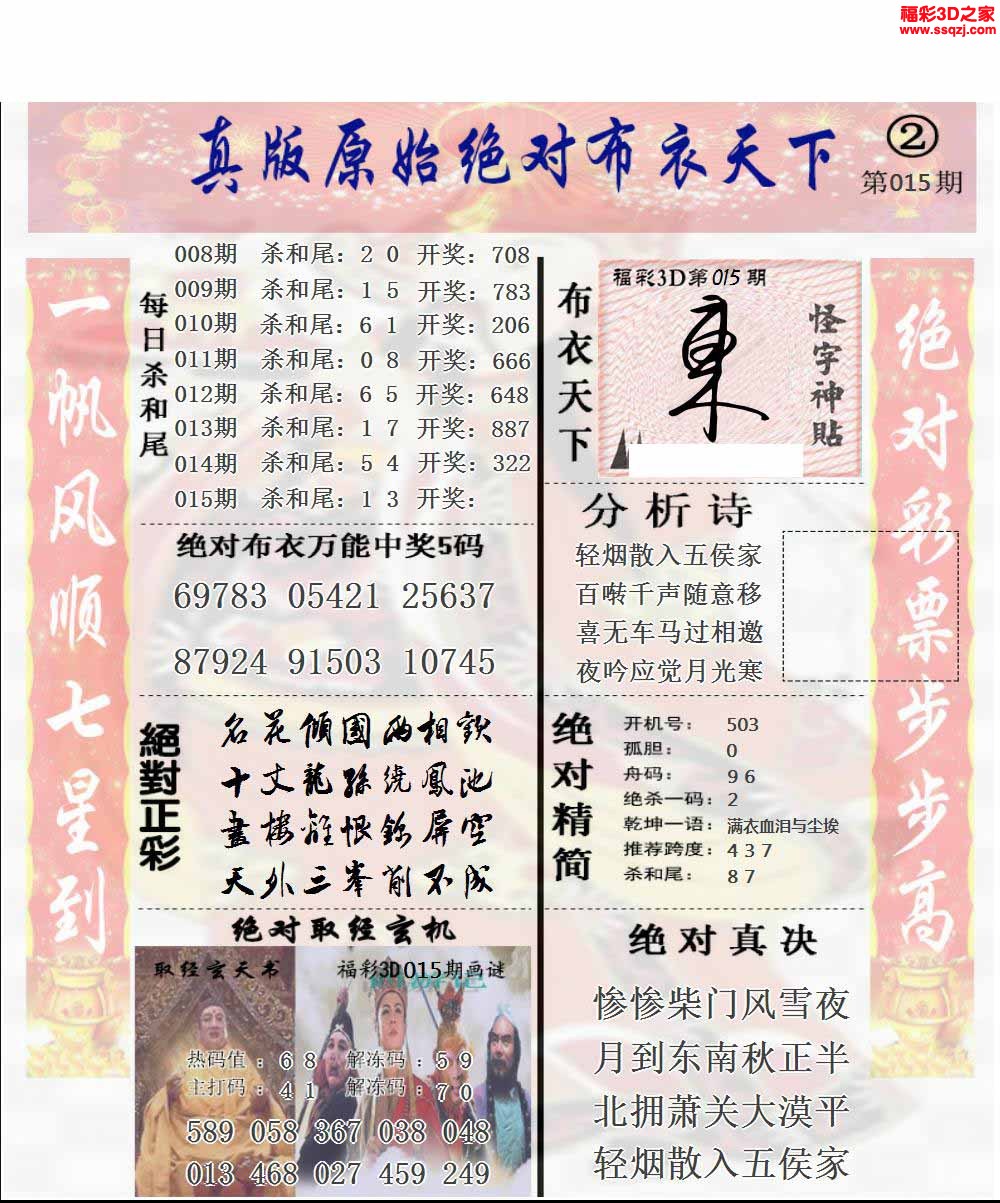 福彩3D之家
www.ssqzj.com
真版原始绝对布衣天下
②
第015期
一帆风顺七星到
每日杀和尾
008期 杀和尾：2 0 开奖：708
009期 杀和尾：1 5 开奖：783
010期 杀和尾：6 1 开奖：206
011期 杀和尾：0 8 开奖：666
012期 杀和尾：6 5 开奖：648
013期 杀和尾：1 7 开奖：887
014期 杀和尾：5 4 开奖：322
015期 杀和尾：1 3 开奖：
绝对布衣万能中奖5码
69783 05421 25637
87924 91503 10745
絕對正彩
名花傾國兩相歡
十丈龍孫繞鳳池
畫樓離恨錦屏空
天外三峯削不成
绝对取经玄机
取经玄天书
福彩3D015期画谜
热码值：6 8 解冻码：5 9
主打码：4 1 解冻码：7 0
589 058 367 038 048
013 468 027 459 249
布衣天下
福彩3D第015期
怪字神貼
分析诗
轻烟散入五侯家
百啭千声随意移
喜无车马过相邀
夜吟应觉月光寒
绝对精简
开机号： 503
孤胆： 0
舟码： 9 6
绝杀一码：2
乾坤一语：满衣血泪与尘埃
推荐跨度：4 3 7
杀和尾： 8 7
绝对真决
惨惨柴门风雪夜
月到东南秋正半
北拥萧关大漠平
轻烟散入五侯家
绝对彩票步步高